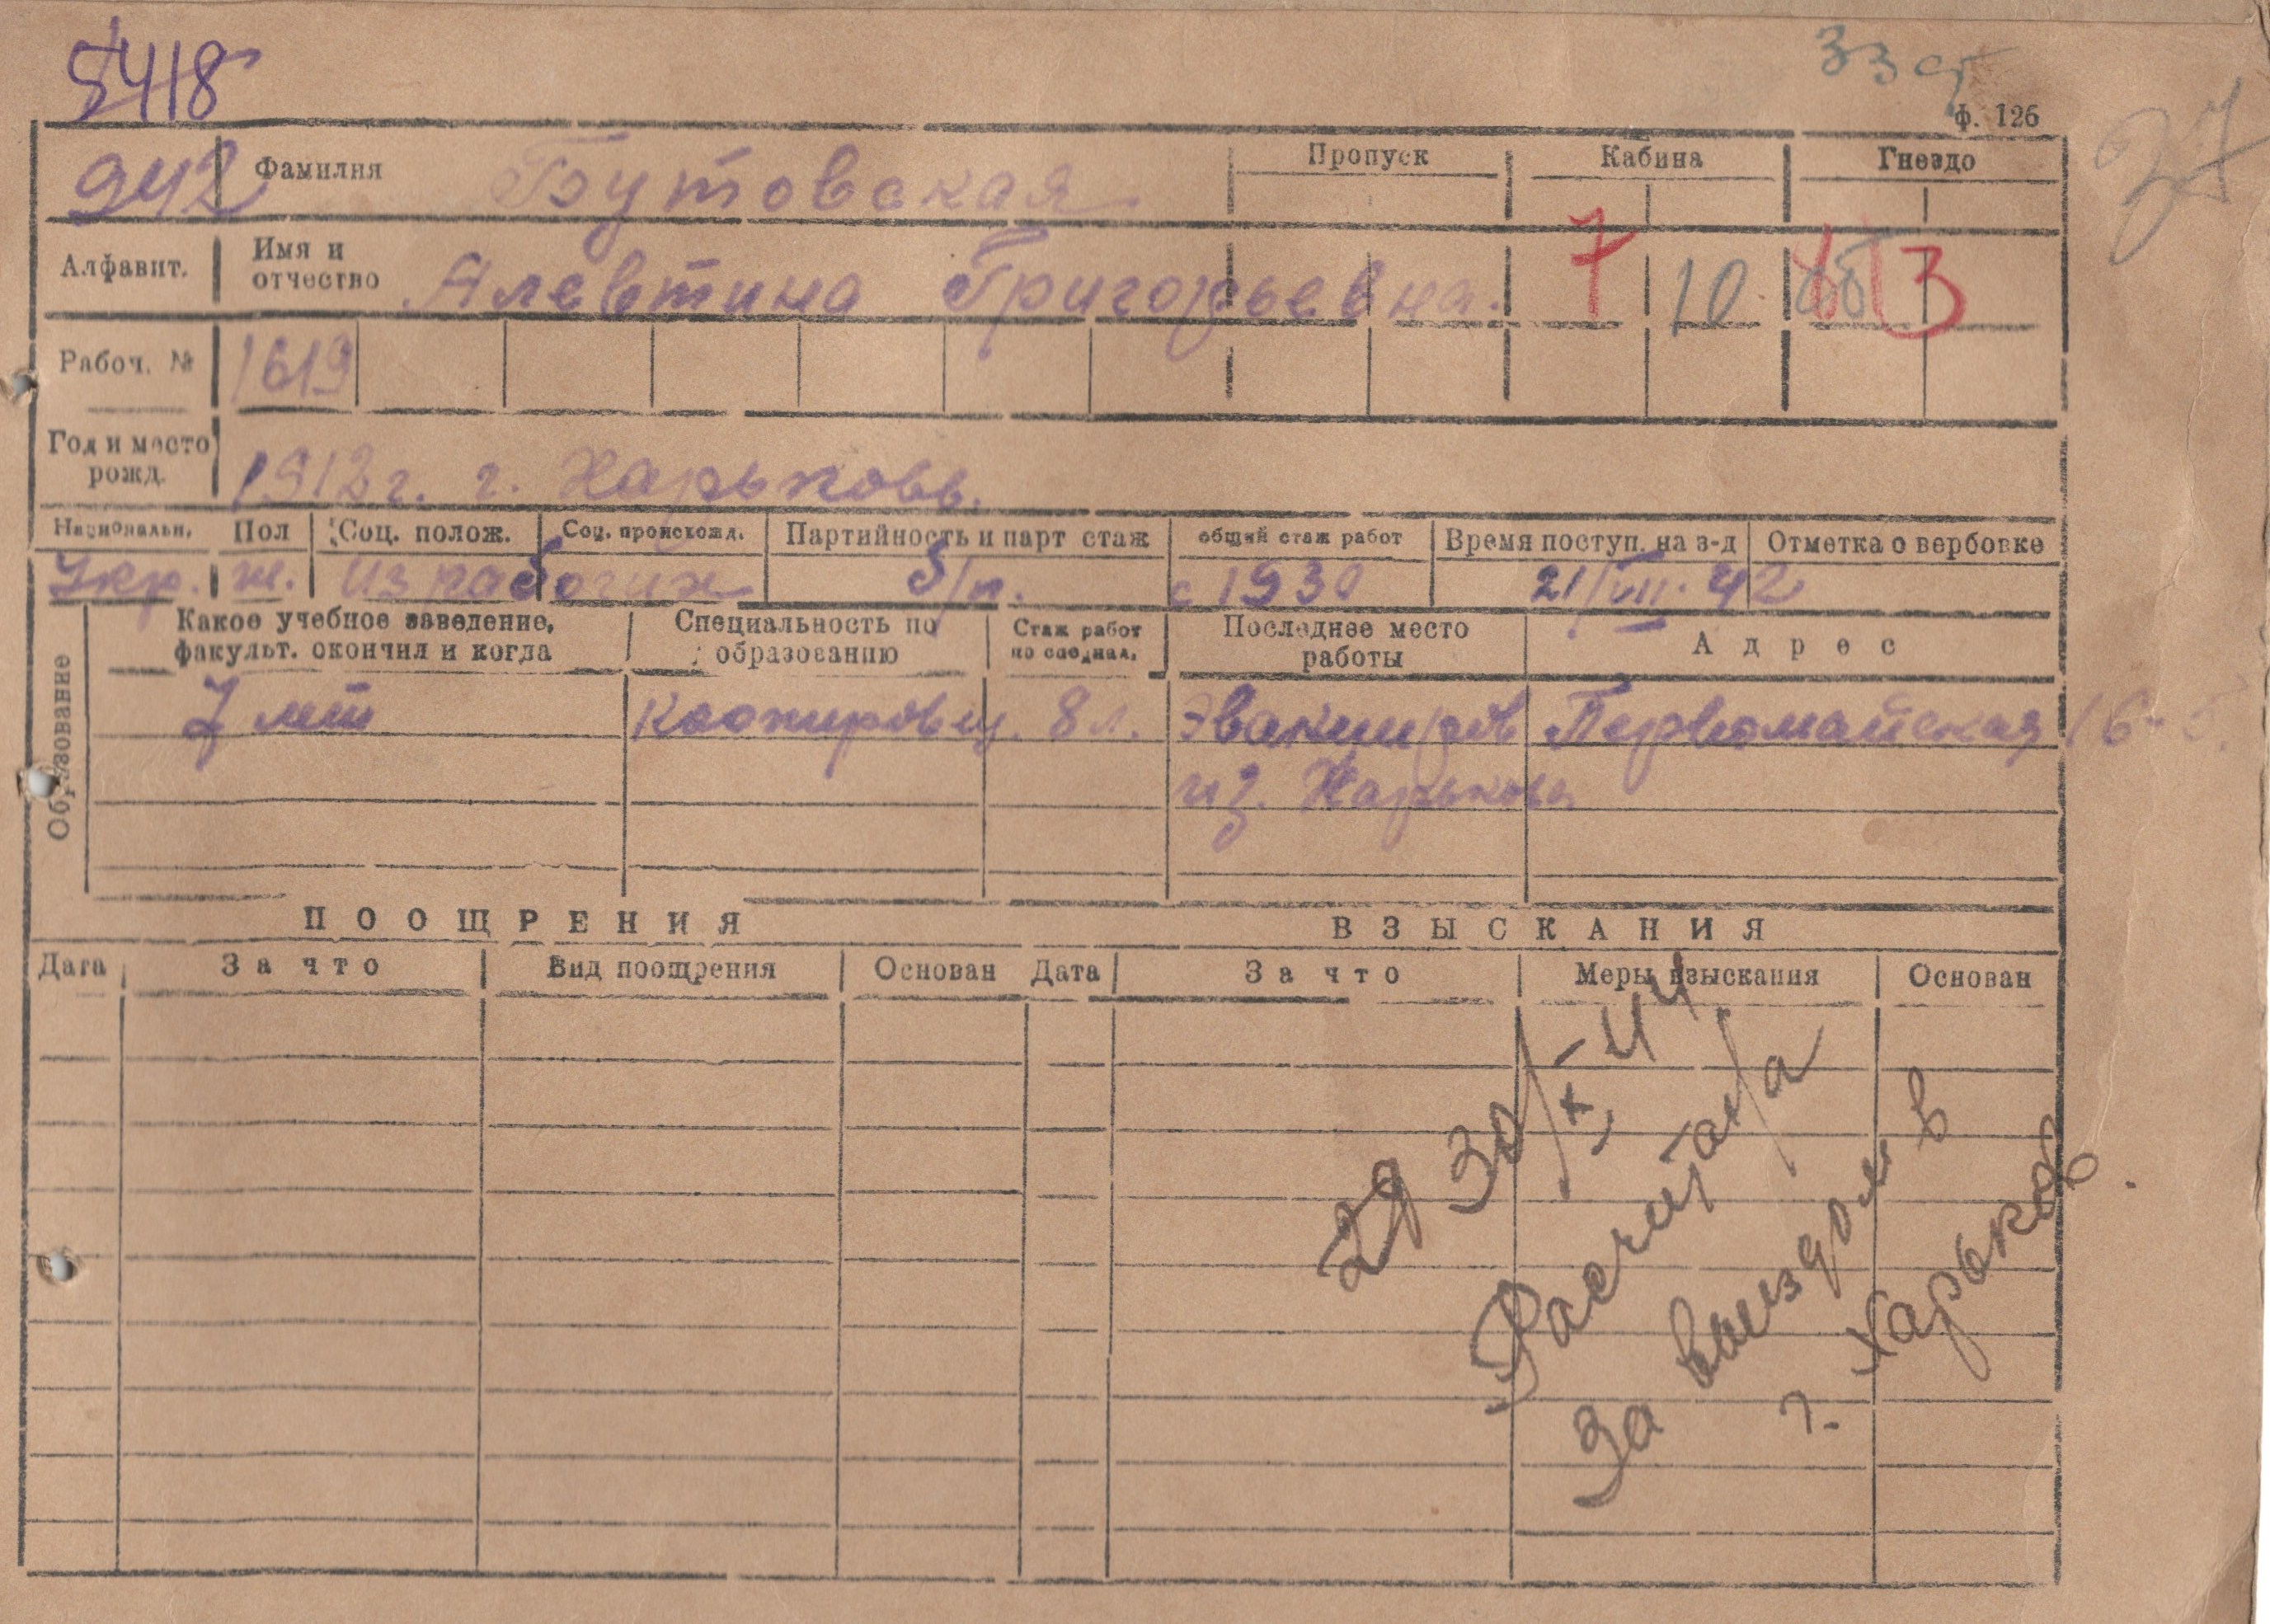 5418
33
ф. 126
27
942 Фамилия Бутовская Пропуск Кабина Гнездо
Алфавит. Имя и отчество Алевтина Григорьевна. 7 10 3
Рабоч. № 1619
Год и место рожд. 1912 г. г. Харьков.
Национальн. Пол Соц. полож. Соц. происхожд. Партийность и парт стаж общий стаж работ Время поступ. на з-д Отметка о вербовке
Укр. ж. из рабочих б/п. с 1930 21/VII. 42
Образование
Какое учебное заведение, факульт. окончил и когда Специальность по образованию Стаж работ по специал. Последнее место работы Адрес
7 лет 8 л. Эвакуиров Первомайская 16
из. Харькова
ПООЩРЕНИЯ ВЗЫСКАНИЯ
Дата За что Вид поощрения Основан Дата За что Меры взыскания Основан
30/X-44
Расчитана
За выездом в
г. Харьков.